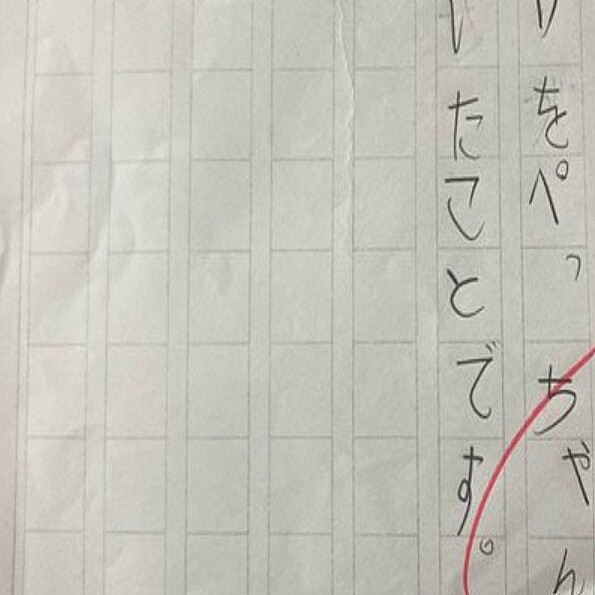 りをぺっちゃん
したことです。